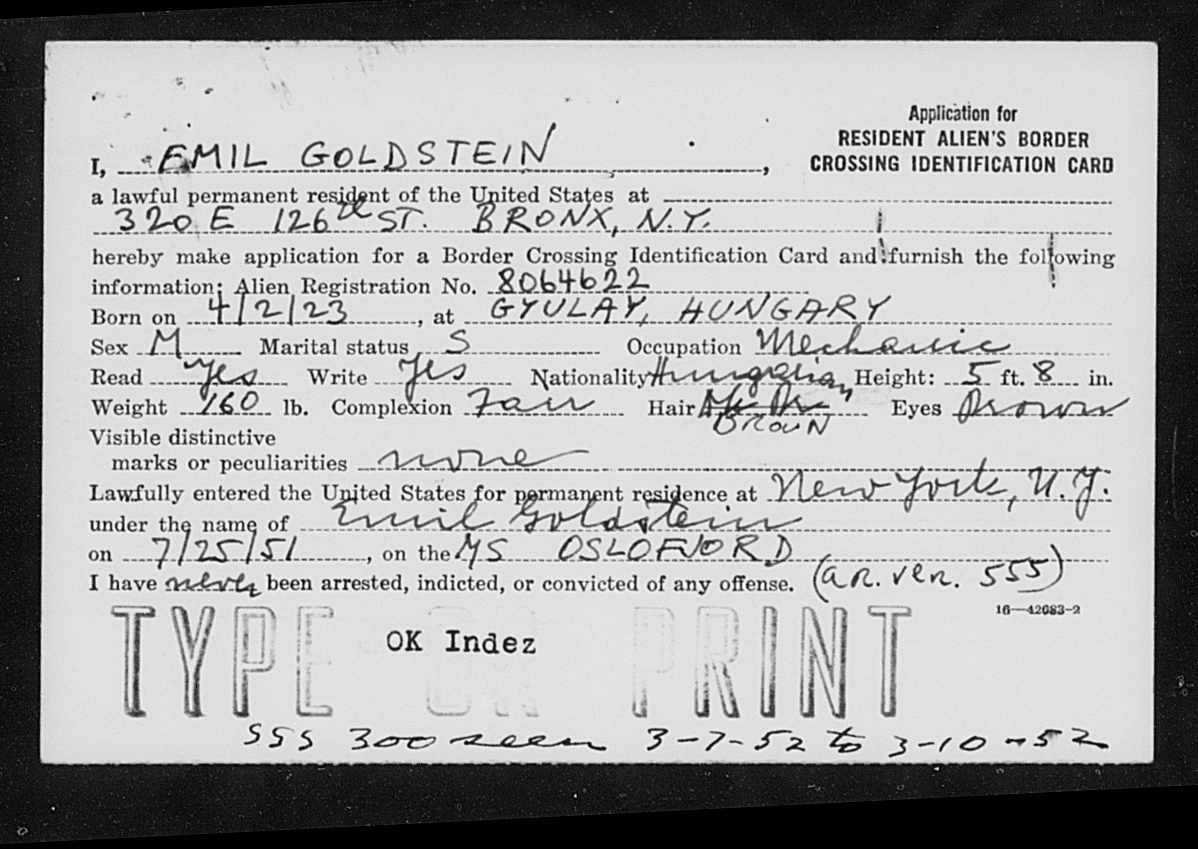 Application for
RESIDENT ALIEN'S BORDER
CROSSING IDENTIFICATION CARD
I, EMIL GOLDSTEIN,
a lawful permanent resident of the United States at
320 E 126th ST. BRONX, N.Y.
hereby make application for a Border Crossing Identification Card and furnish the following
information: Alien Registration No. 8064622
Born on 4/2/23, at GYULAY, HUNGARY
Sex M Marital status S Occupation Mechanic
Read Yes Write Yes Nationality Hungarian Height: 5 ft. 8 in.
Weight 160 lb. Complexion Fair Hair BROWN Eyes Brown
Visible distinctive
marks or peculiarities none
Lawfully entered the United States for permanent residence at New York, N.Y.
under the name of Emil Goldstein
on 7/25/51, on the MS OSLOFJORD
I have never been arrested, indicted, or convicted of any offense. (a.r. ver. 555)
16—42683-2
TYPE OR PRINT
OK Indez
SSS 300 seen 3-7-52 to 3-10-52